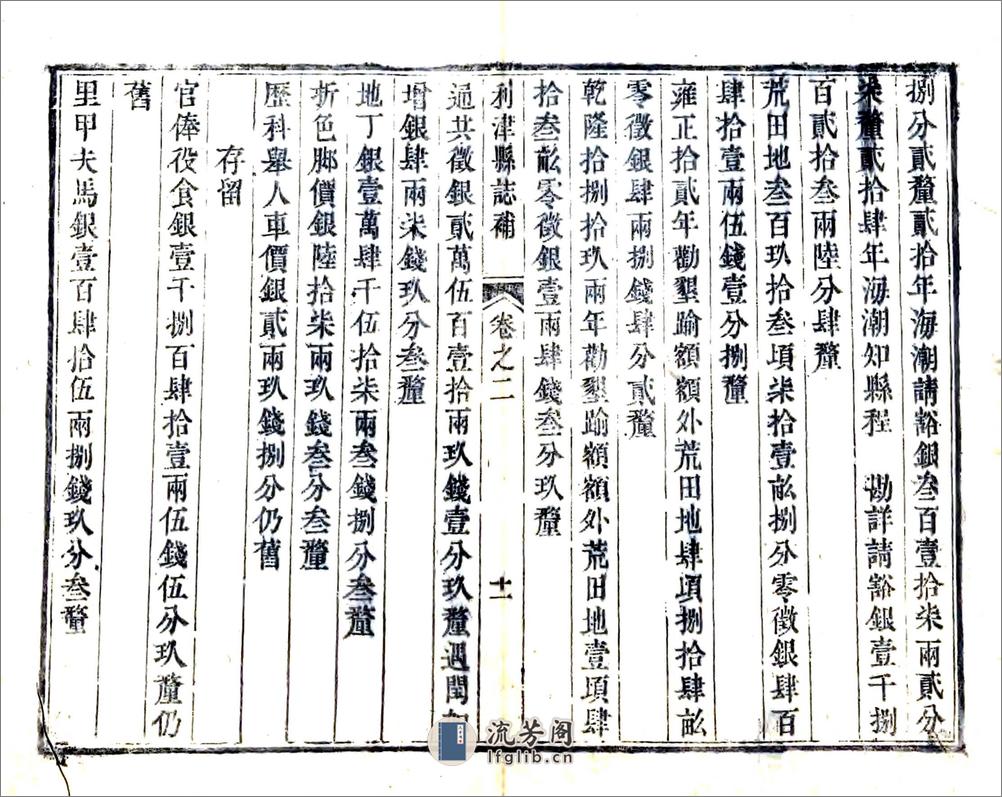 捌分貳釐貳拾年海潮請豁銀叁百壹拾柒兩貳分
柒釐貳拾肆年海潮知縣程 勘詳請豁銀壹千捌
百貳拾叁兩陸分肆釐
荒田地叁百玖拾叁頃柒拾壹畝捌分零徵銀肆百
肆拾壹兩伍錢壹分捌釐
雍正拾貳年勸墾踰額額外荒田地肆項捌拾肆畝
零徵銀肆兩捌錢肆分貳釐
乾隆拾捌拾玖兩年勸墾踰額額外荒田地壹項肆
拾叁畝零徵銀壹兩肆錢叁分玖釐
利津縣誌補 卷之二 十一
通共徵銀貳萬伍百壹拾兩玖錢壹分玖釐遇閏加
增銀肆兩柒錢玖分叁釐
地丁銀壹萬肆千伍拾柒兩叁錢捌分叁釐
折色脚價銀陸拾柒兩玖錢叁分叁釐
歷科舉人車價銀貳兩玖錢捌分仍舊
存留
官俸役食銀壹千捌百肆拾壹兩伍錢伍分玖釐仍
舊
里甲夫馬銀壹百肆拾伍兩捌錢玖分叁釐
流芳阁
lfglib.cn